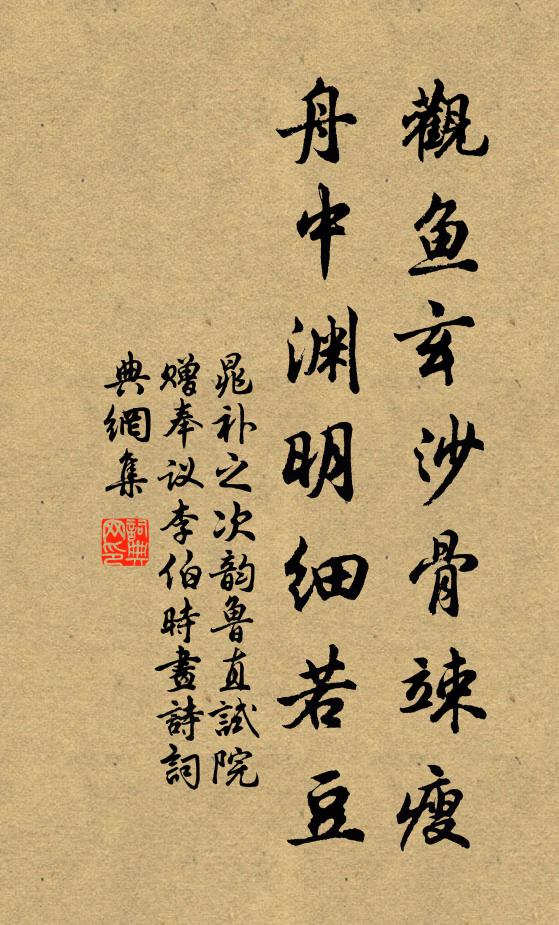 觀鱼玄沙骨竦瘦
舟中渊明细若豆
晁补之次韵鲁直試院
赠奉议李伯時畫詩詞
典網集
詞典网印